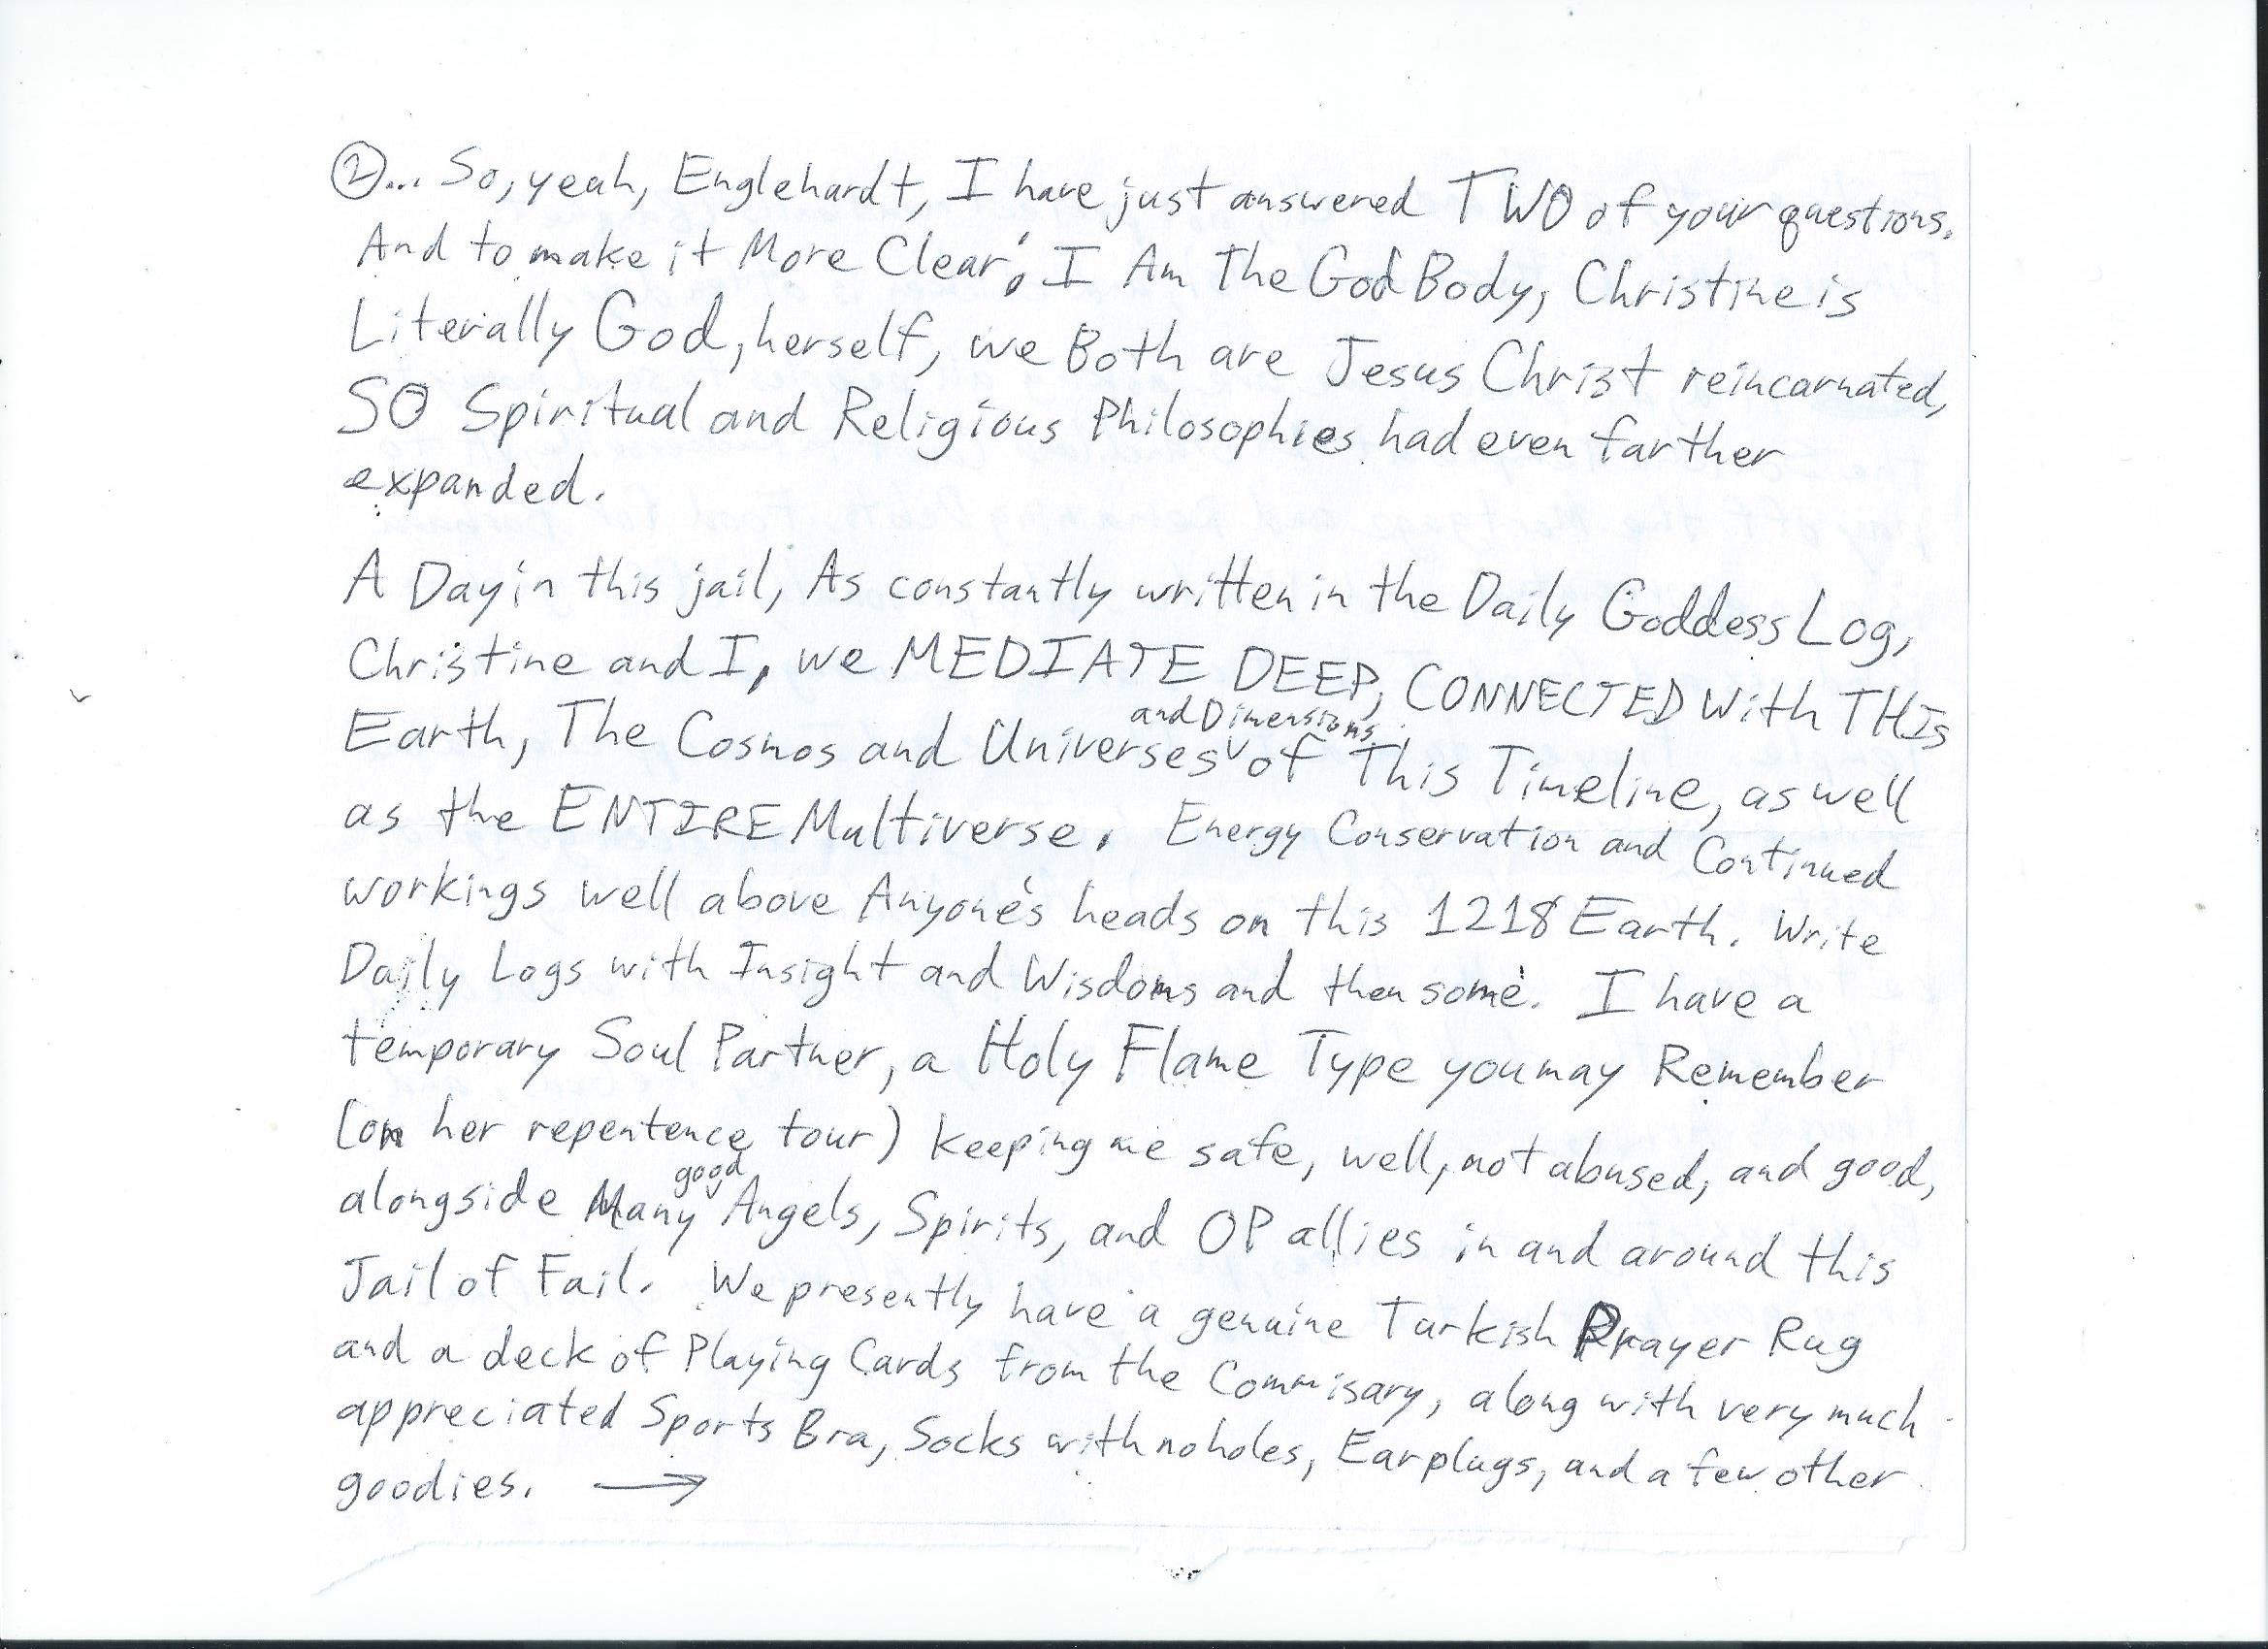 ②... So, yeah, Englehardt, I have just answered TWO of your questions.
And to make it More Clear; I Am The God Body, Christine is
Literally God, herself, we Both are Jesus Christ reincarnated,
SO Spiritual and Religious Philosophies had even farther
expanded.
A Day in this jail, As constantly written in the Daily Goddess Log,
Christine and I, we MEDIATE DEEP, CONNECTED With THIS
Earth, The Cosmos and Universes and Dimensions of This Timeline, as well
as the ENTIRE Multiverse. Energy Conservation and Continued
workings well above Anyone's heads on this 1218 Earth. Write
Daily Logs with Insight and Wisdoms and then some. I have a
temporary Soul Partner, a Holy Flame Type you may Remember
(on her repentence tour) keeping me safe, well, not abused, and good,
alongside Many good Angels, Spirits, and OP allies in and around this
Jail of Fail. We presently have a genuine Turkish Prayer Rug
and a deck of Playing Cards from the Commisary, along with very much
appreciated Sports Bra, Socks with no holes, Earplugs, and a few other
goodies. →